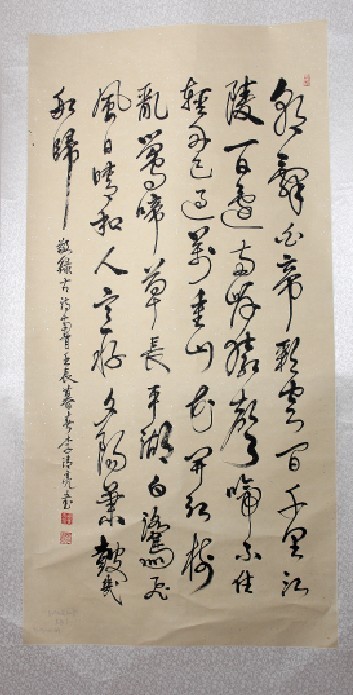 朝辭白帝彩雲間千里江
陵一日還兩岸猿聲啼不住
輕舟已過萬重山花開紅樹
亂鶯啼草長平湖白鷺飛
風日晴和人意好夕陽簫鼓幾
船歸
敬錄古詩兩首壬辰暮春李亮書